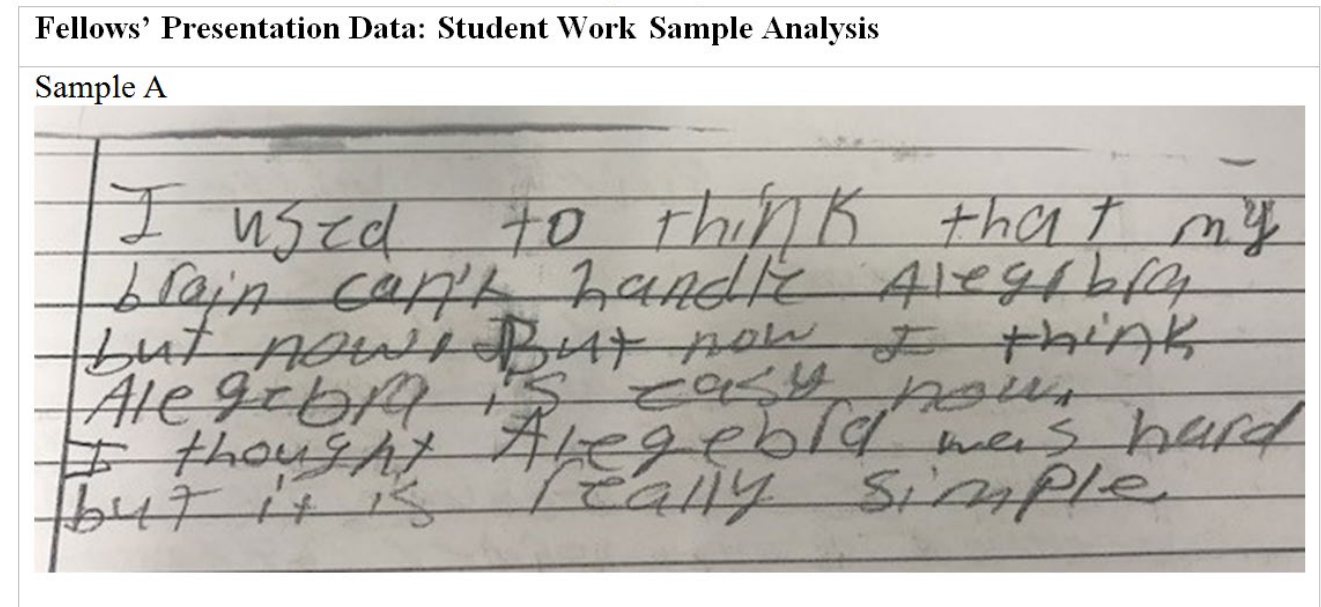 Fellows' Presentation Data: Student Work Sample Analysis
Sample A
I used to think that my
brain can't handle Alegebra
but now. But now I think
Alegebra is easy now.
I thought Alegebra was hard
but it is really simple